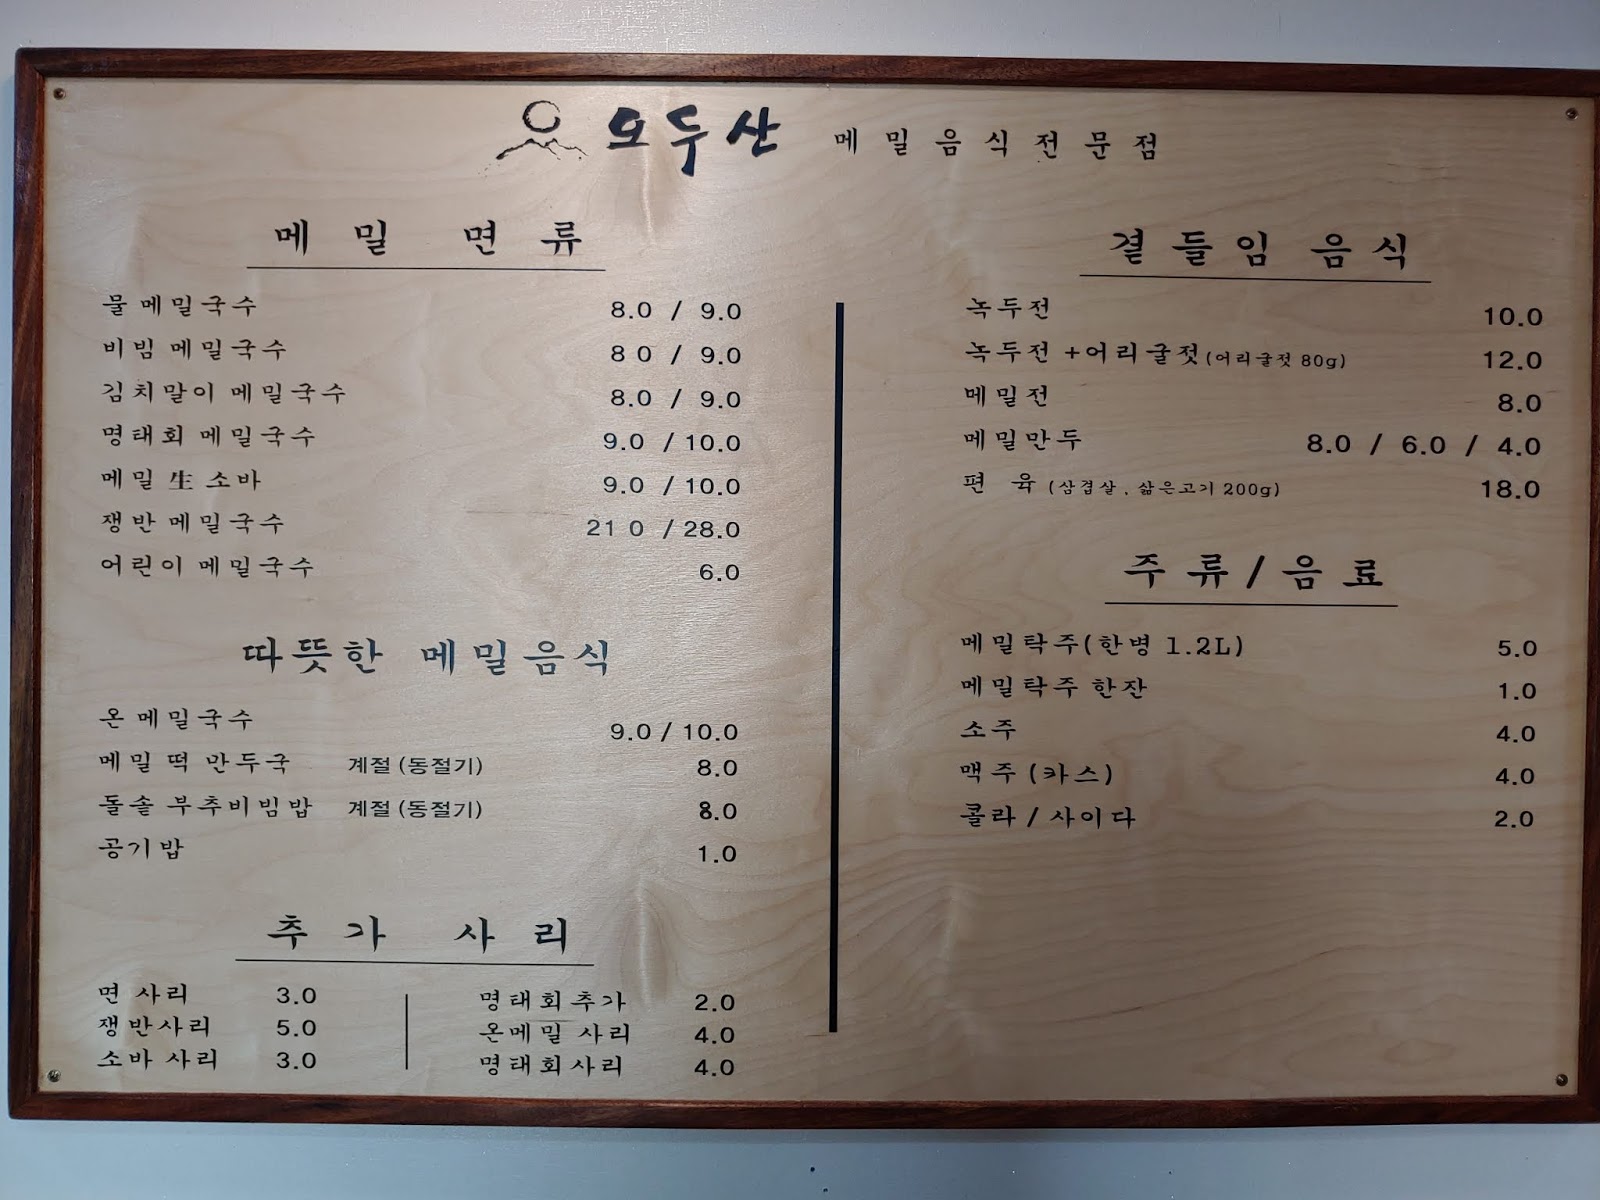 오두산 메밀음식전문점
메밀 면류
물 메밀국수 8.0 / 9.0
비빔 메밀국수 8 0 / 9.0
김치말이 메밀국수 8.0 / 9.0
명태회 메밀국수 9.0 / 10.0
메밀 生 소바 9.0 / 10.0
쟁반 메밀국수 21 0 / 28.0
어린이 메밀국수 6.0
따뜻한 메밀음식
온 메밀국수 9.0 / 10.0
메밀 떡 만두국 계절 (동절기) 8.0
돌솥 부추비빔밥 계절 (동절기) 8.0
공기밥 1.0
추가 사리
면 사리 3.0
쟁반사리 5.0
소바 사리 3.0
명태회추가 2.0
온메밀 사리 4.0
명태회사리 4.0
곁들임 음식
녹두전 10.0
녹두전 +어리굴젓 (어리굴젓 80g) 12.0
메밀전 8.0
메밀만두 8.0 / 6.0 / 4.0
편 육 (삼겹살 , 삶은고기 200g) 18.0
주류 / 음료
메밀탁주(한병 1.2L) 5.0
메밀탁주 한잔 1.0
소주 4.0
맥주 (카스) 4.0
콜라 / 사이다 2.0